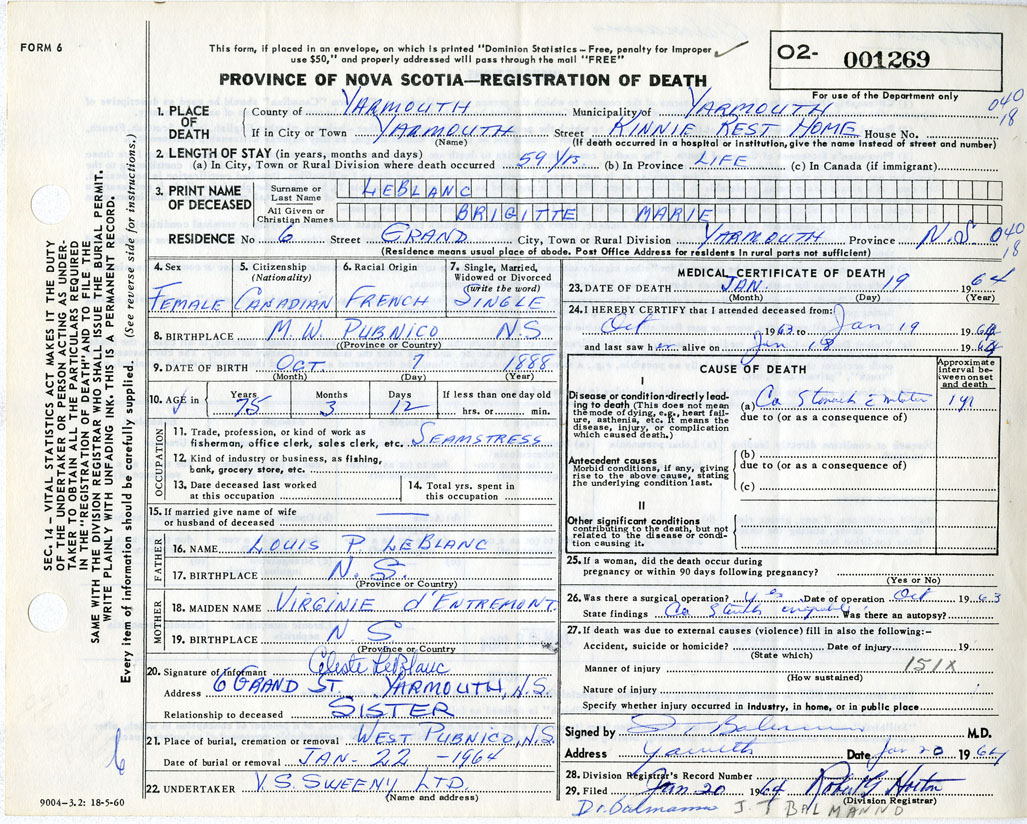 FORM 6
This form, if placed in an envelope, on which is printed "Dominion Statistics – Free, penalty for improper
use $50," and properly addressed will pass through the mail "FREE"
02- 001269
For use of the Department only
PROVINCE OF NOVA SCOTIA—REGISTRATION OF DEATH
040
18
1. PLACE OF DEATH
County of YARMOUTH Municipality of YARMOUTH
If in City or Town YARMOUTH Street KINNIE REST HOME House No.
(Name) (If death occurred in a hospital or institution, give the name instead of street and number)
2. LENGTH OF STAY (in years, months and days)
(a) In City, Town or Rural Division where death occurred 59 Yrs (b) In Province LIFE (c) In Canada (if immigrant)
3. PRINT NAME OF DECEASED
Surname or Last Name LEBLANC
All Given or Christian Names BRIGITTE MARIE
RESIDENCE No 6 Street GRAND City, Town or Rural Division YARMOUTH Province N.S 040
18
(Residence means usual place of abode. Post Office Address for residents in rural parts not sufficient)
4. Sex FEMALE
5. Citizenship (Nationality) CANADIAN
6. Racial Origin FRENCH
7. Single, Married, Widowed or Divorced (write the word) SINGLE
8. BIRTHPLACE M.W. PUBNICO NS
(Province or Country)
9. DATE OF BIRTH OCT. 7 1888
(Month) (Day) (Year)
10. AGE in Years 75 Months 3 Days 12 If less than one day old hrs. or min.
OCCUPATION
11. Trade, profession, or kind of work as
fisherman, office clerk, sales clerk, etc. SEAMSTRESS
12. Kind of industry or business, as fishing,
bank, grocery store, etc.
13. Date deceased last worked
at this occupation
14. Total yrs. spent in
this occupation
15. If married give name of wife
or husband of deceased
FATHER
16. NAME LOUIS P LEBLANC
17. BIRTHPLACE N.S.
(Province or Country)
MOTHER
18. MAIDEN NAME VIRGINIE d'ENTREMONT.
19. BIRTHPLACE N S
(Province or Country)
20. Signature of Informant Celeste LeBlanc
Address 6 GRAND ST. YARMOUTH, N.S.
Relationship to deceased SISTER
21. Place of burial, cremation or removal WEST PUBNICO, N.S.
Date of burial or removal JAN-22-1964
22. UNDERTAKER V.S. SWEENY LTD.
(Name and address)
9004-3.2: 18-5-60
6
MEDICAL CERTIFICATE OF DEATH
23. DATE OF DEATH JAN. 19 1964
(Month) (Day) (Year)
24. I HEREBY CERTIFY that I attended deceased from:
Oct 1963 to Jan 19 1964
and last saw her alive on Jan 18 1964
CAUSE OF DEATH
Approximate interval between onset and death
I
Disease or condition directly leading to death (This does not mean the mode of dying, e.g., heart failure, asthenia, etc. It means the disease, injury, or complication which caused death.)
(a) Ca Stomach 1 yr
due to (or as a consequence of)
Antecedent causes
Morbid conditions, if any, giving rise to the above cause, stating the underlying condition last.
(b)
due to (or as a consequence of)
(c)
II
Other significant conditions
contributing to the death, but not related to the disease or condition causing it.
25. If a woman, did the death occur during
pregnancy or within 90 days following pregnancy?
(Yes or No)
26. Was there a surgical operation? yes Date of operation Oct 1963
State findings Ca Stomach Was there an autopsy?
27. If death was due to external causes (violence) fill in also the following:–
Accident, suicide or homicide? Date of injury 19
(State which)
Manner of injury 151X
(How sustained)
Nature of injury
Specify whether injury occurred in industry, in home, or in public place
Signed by J T Balmanno M.D.
Address Yarmouth Date Jan 20 1964
28. Division Registrar's Record Number
29. Filed Jan 20 1964 Robert G Horton
(Division Registrar)
Dr. Balmanno J. T BALMANNO
SEC. 14 – VITAL STATISTICS ACT MAKES IT THE DUTY
OF THE UNDERTAKER OR PERSON ACTING AS UNDER-
TAKER TO OBTAIN ALL THE PARTICULARS REQUIRED
IN THE "REGISTRATION OF DEATH" AND TO FILE THE
SAME WITH THE DIVISION REGISTRAR WHO SHALL ISSUE THE BURIAL PERMIT.
WRITE PLAINLY WITH UNFADING INK. THIS IS A PERMANENT RECORD.
Every item of information should be carefully supplied. (See reverse side for instructions.)